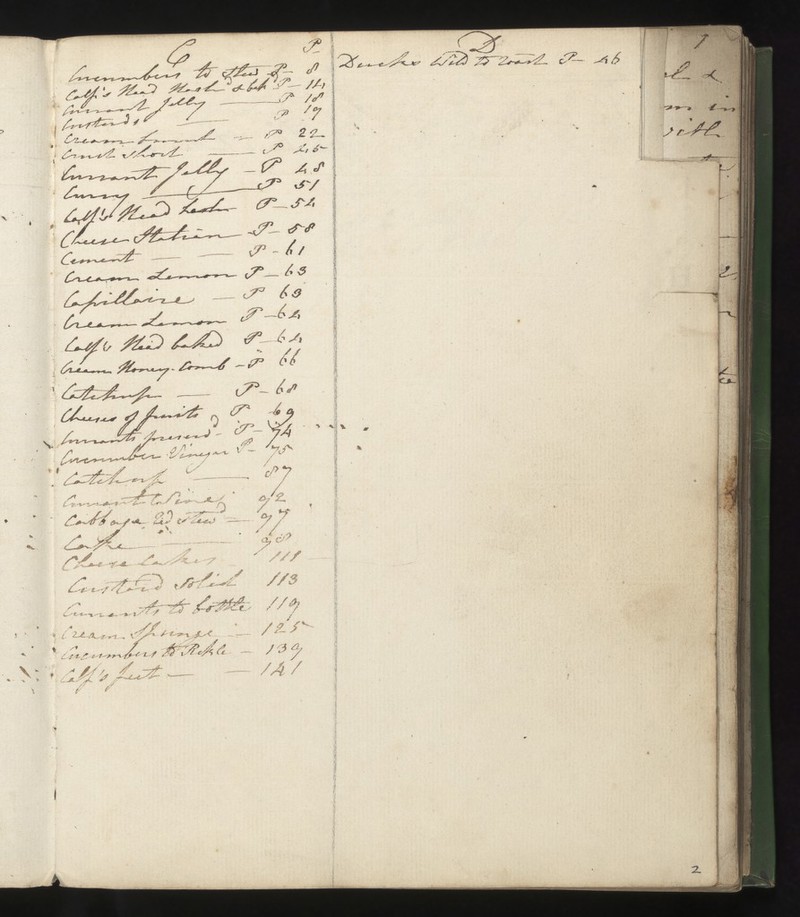 C P
Cucumbers to Stew P- 8
Calf's Head Hash'd & bak'd P- 14
Currant Jelly P 18
Custards P 19
Cream Lemon P 22
Crust Short P 45
Currant Jelly - P 48
Curry P 51
Calf's Head hash P- 54
Cheese Italian P- 58
Cement P- 61
Cream Lemon P- 63
Capillaire - P 63
Cream Lemon P- 64
Calf's Head baked P- 64
Cream Honey-Comb - P 66
Catchup P- 68
Cheeses of fruits P 69
Currants preserv'd - P- 74
Cucumber Vinegar P- 75
Catchup 87
Currant Wine 92
Cabbage Red Stew'd 97
Cake 98
Cheese Cakes 111
Custard Solid 113
Currants to bottle 119
Cream Spunge 125
Cucumbers to Pickle - 139
Calf's feet 141
D
Ducks Wild to roast P- 46
1
2